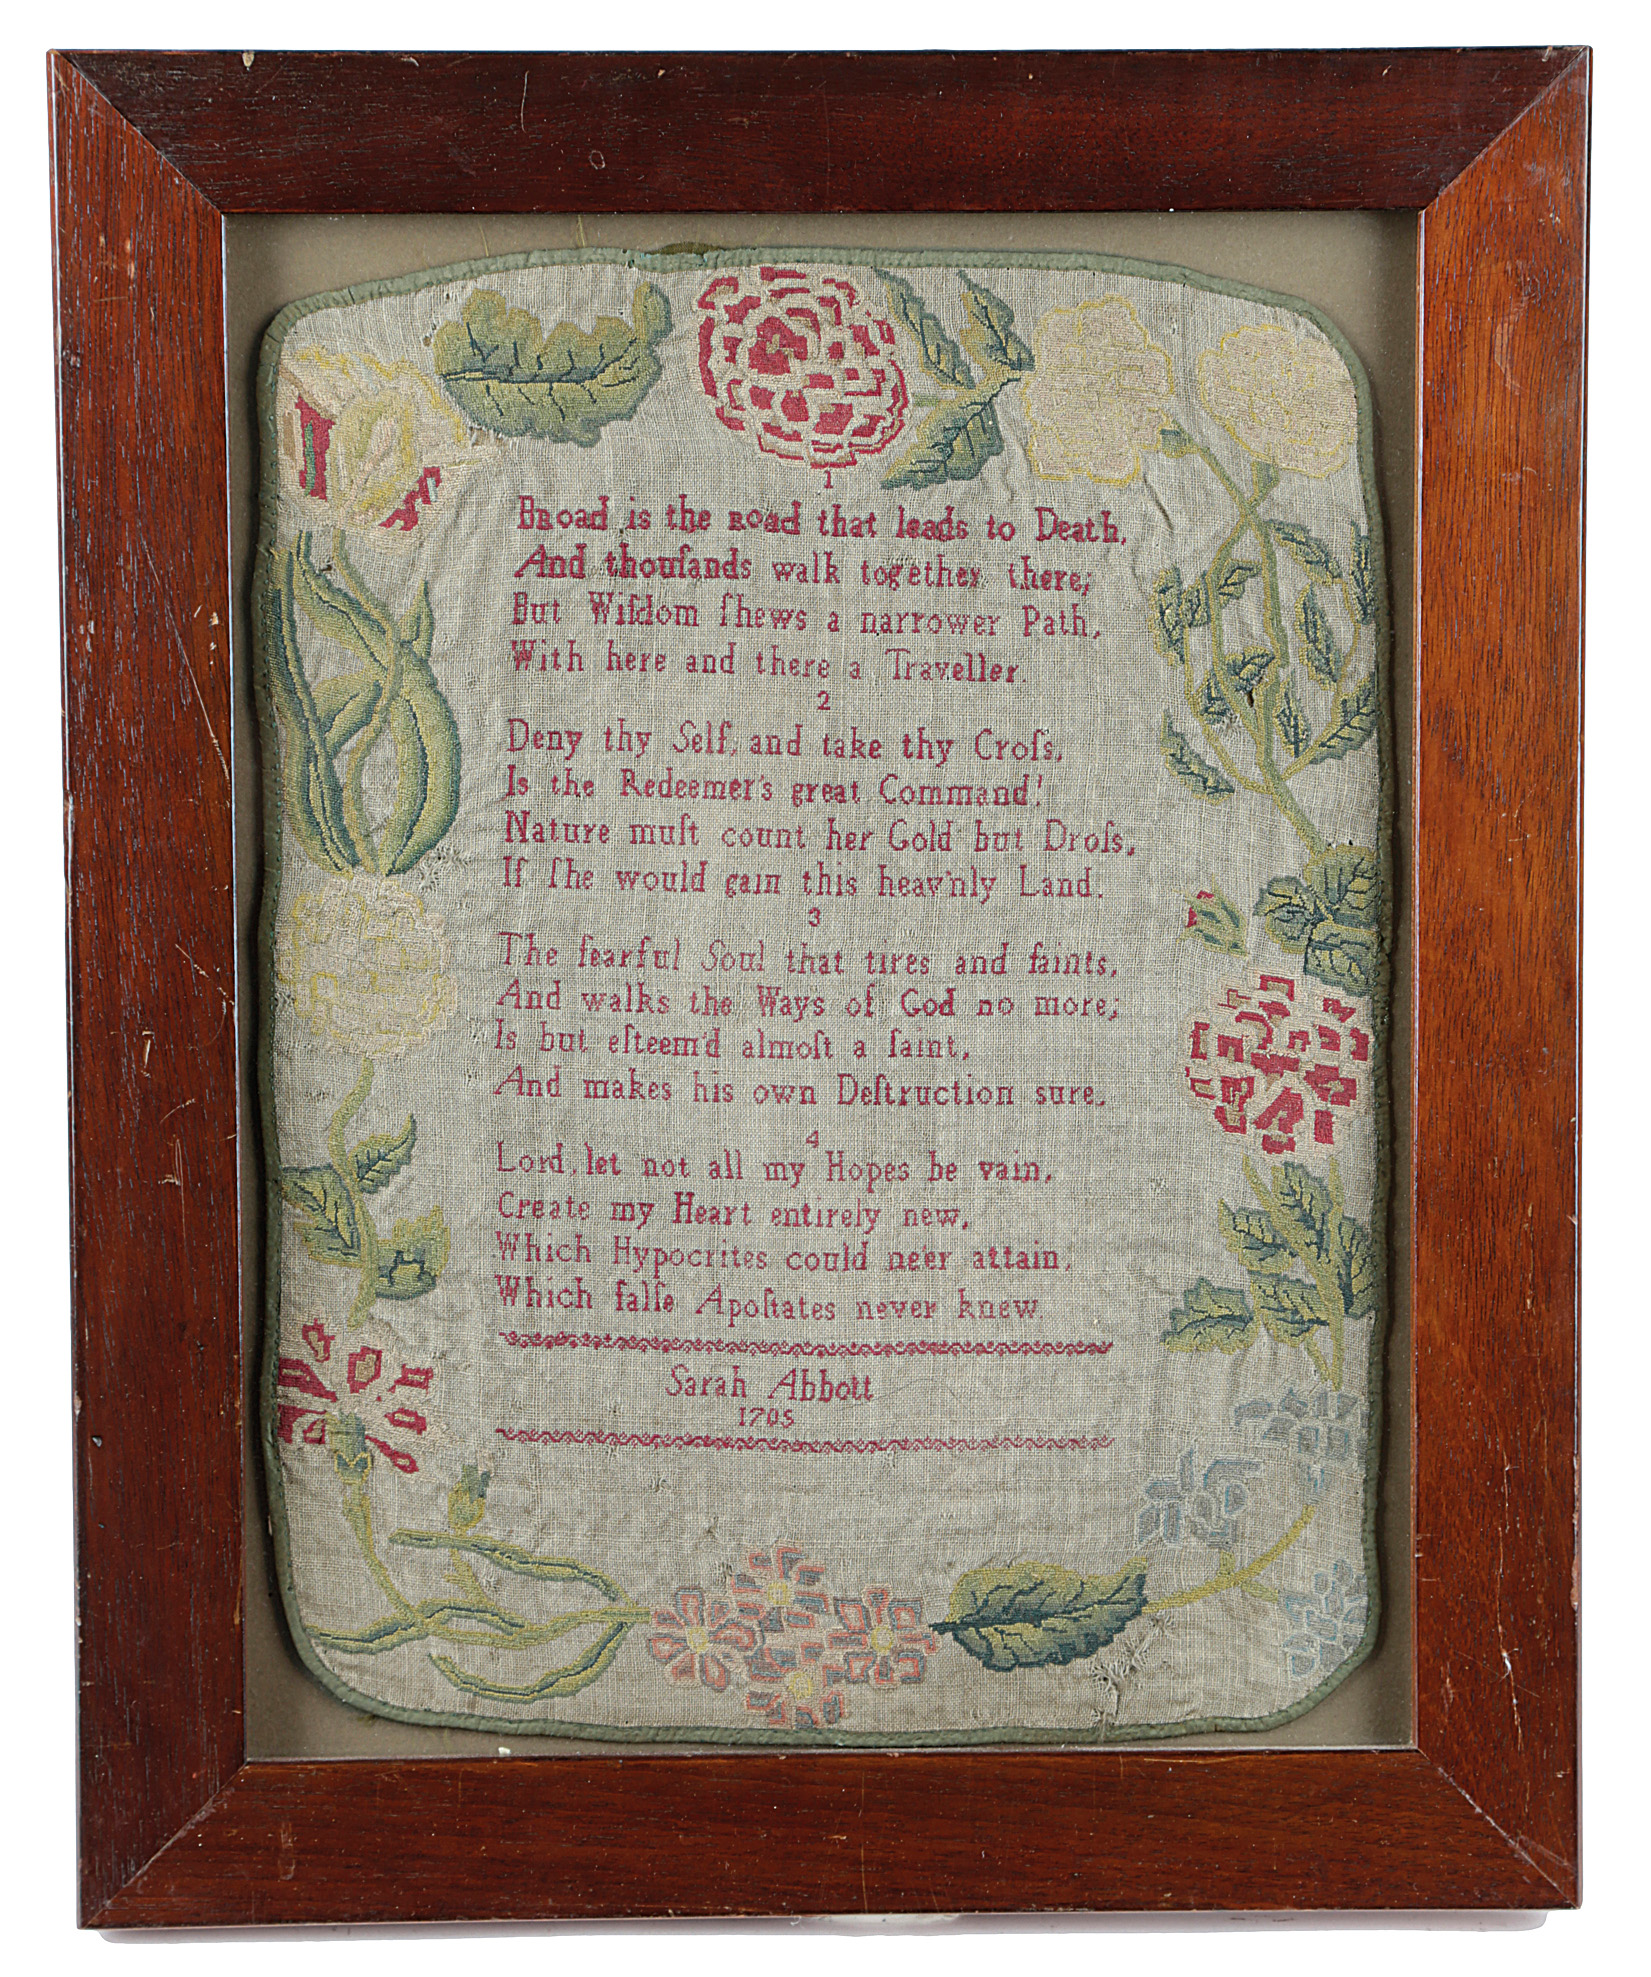 1
Broad is the road that leads to Death,
And thouſands walk together there;
But Wiſdom ſhews a narrower Path,
With here and there a Traveller.
2
Deny thy Self, and take thy Croſs,
Is the Redeemer's great Command!
Nature muſt count her Gold but Droſs,
If ſhe would gain this heav'nly Land.
3
The fearful Soul that tires and faints,
And walks the Ways of God no more;
Is but eſteem'd almoſt a ſaint,
And makes his own Deſtruction sure.
4
Lord, let not all my Hopes be vain,
Create my Heart entirely new,
Which Hypocrites could ne'er attain,
Which falſe Apoſtates never knew.
Sarah Abbott
1705